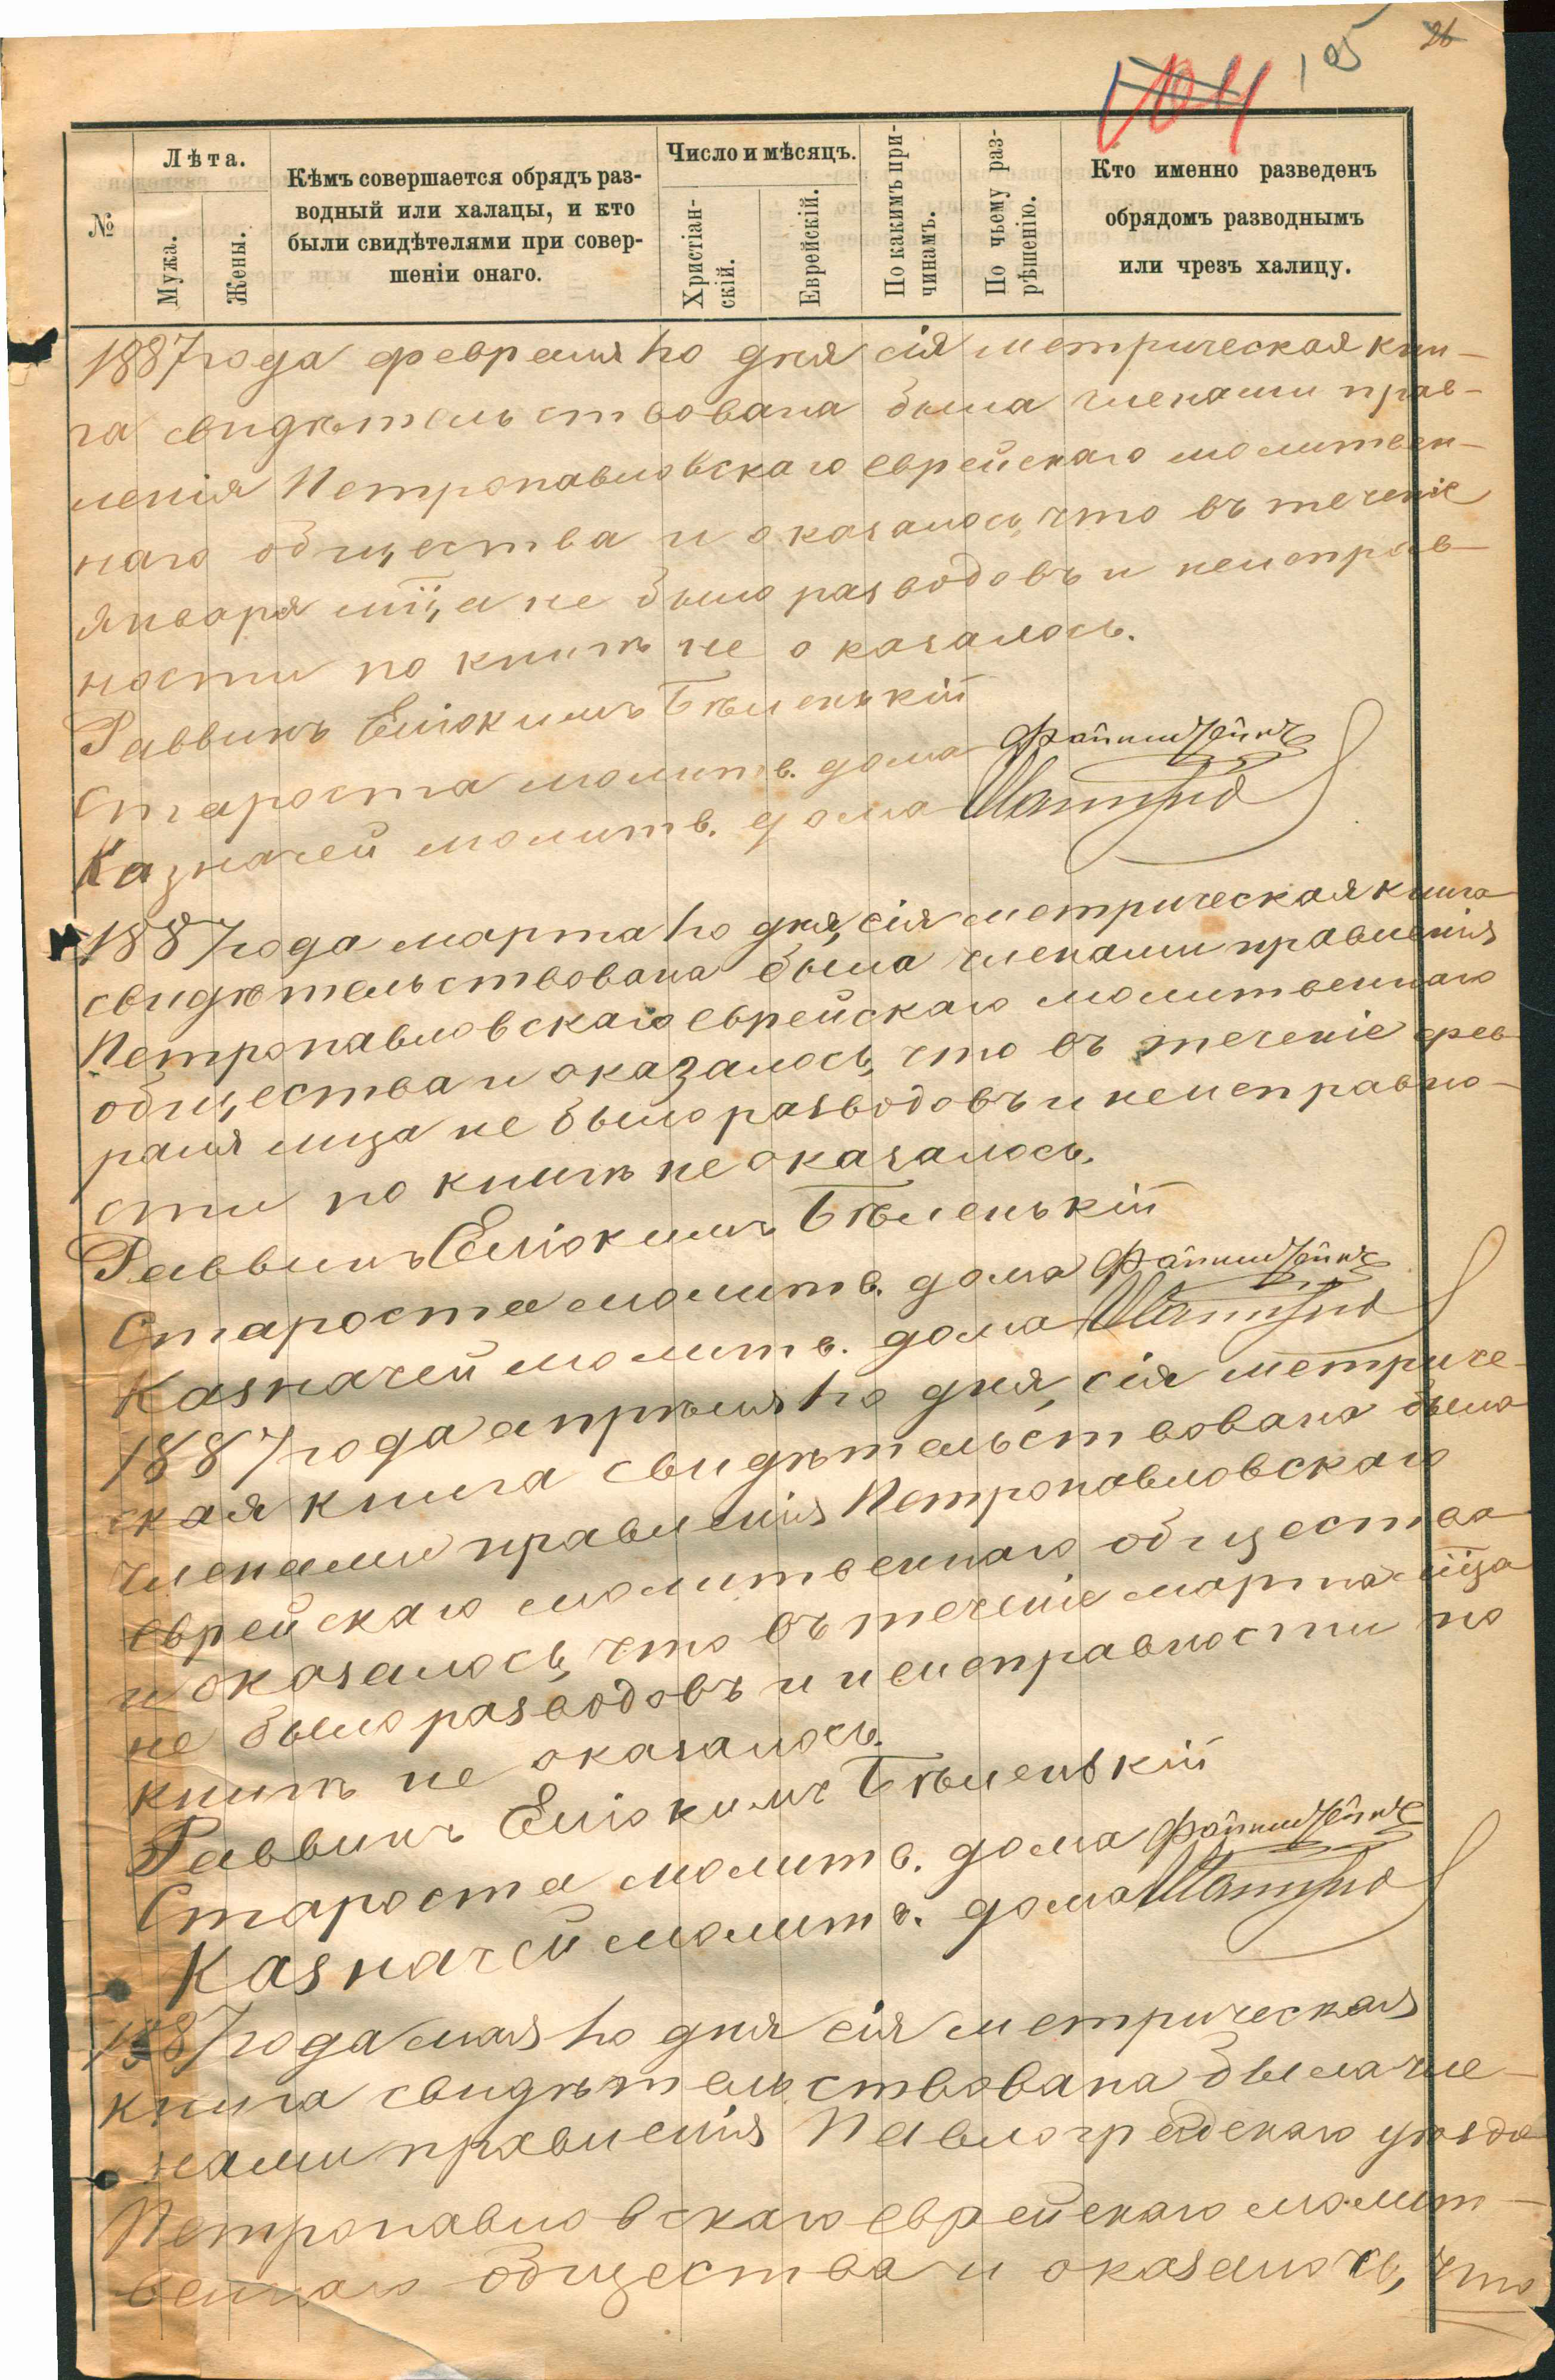 26
105
104
№
Лѣта.
Мужа.
Жены.
Кѣмъ совершается обрядъ раз-
водный или халацы, и кто
были свидѣтелями при совер-
шеніи онаго.
Число и мѣсяцъ.
Христіан-
скій.
Еврейскій.
По какимъ при-
чинамъ.
По чьему раз-
рѣшенію.
Кто именно разведенъ
обрядомъ разводнымъ
или чрезъ халицу.
1887 года февраля 1го дня сія метрическая кни-
га свидѣтельствована была членами прав-
ленія Петропавловскаго еврейскаго молитвен-
наго общества и оказалось, что въ теченіе
января мц̃а не было разводовъ и неисправ-
ности по книгѣ не оказалось.
Раввинъ Еліокимъ Бѣленькій
Староста молитв. дома Файнштейнъ
Казначей молитв. дома
1887 года марта 1го дня, сія метрическая книга
свидѣтельствована была членами правленія
Петропавловскаго еврейскаго молитвеннаго
общества и оказалось, что въ теченіе фев-
раля мца не было разводовъ и неисправно-
сти по книгѣ не оказалось.
Раввинъ Еліокимъ Бѣленькій
Староста молитв. дома Файнштейнъ
Казначей молитв. дома
1887 года апрѣля 1го дня, сія метриче-
ская книга свидѣтельствована была
членами правленія Петропавловскаго
еврейскаго молитвеннаго общества
и оказалось, что въ теченіе марта мц̃а
не было разводовъ и неисправности по
книгѣ не оказалось.
Раввинъ Еліокимъ Бѣленькій
Староста молитв. дома Файнштейнъ
Казначей молитв. дома
1887 года мая 1го дня сія метрическая
книга свидѣтельствована была чле-
нами правленія Павлоградскаго уѣзда
Петропавловскаго еврейскаго молит-
веннаго общества и оказалось, что